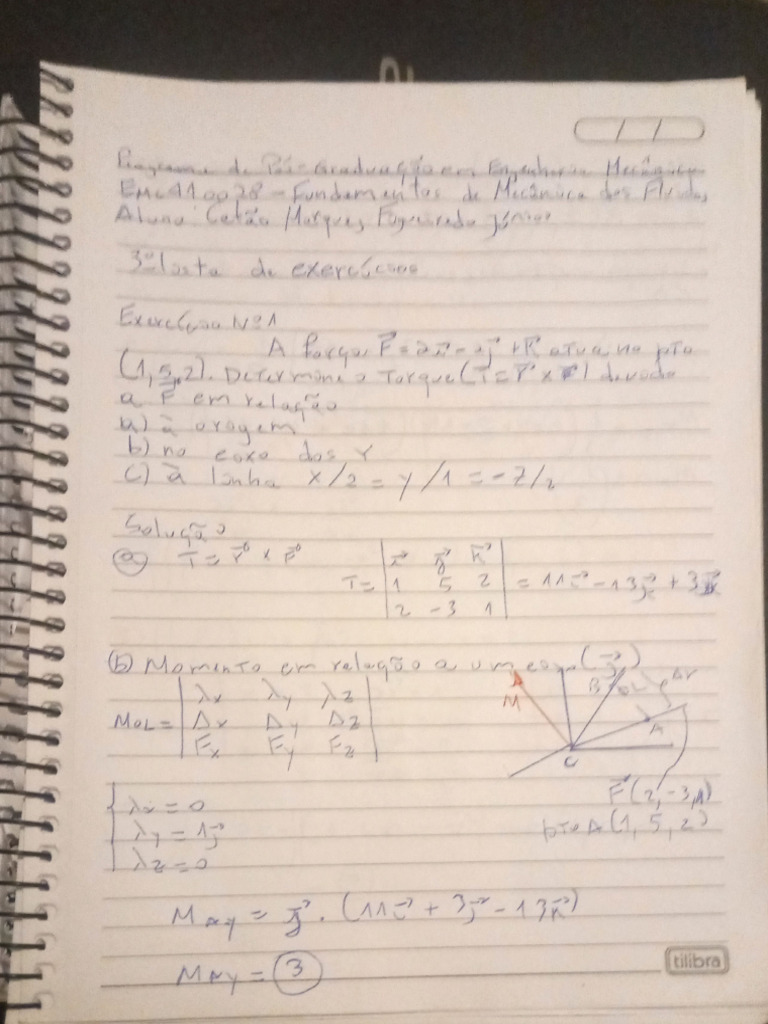 Programa de Pós-Graduação em Engenharia Mecânica
EMC410028 - Fundamentos de Mecânica dos Fluidos
Aluno: Marques Figueiredo Júnior
3ª lista de exercícios
Exercício Nº 1
A força F⃗ = 2i⃗ - 3j⃗ + k⃗ atua no pto
(1, 5, 2). Determine o Torque (T = r⃗ x F⃗) devido
a F em relação
a) à origem
b) no eixo dos Y
c) à linha x/2 = y/1 = -z/2
Solução
(a) T = r⃗ x F⃗
i⃗ j⃗ k⃗
T = 1 5 2 = 11i⃗ - 13k⃗ + 3j⃗
2 -3 1
(b) Momento em relação a um eixo (j⃗)
λx λy λz
MOL = Δx Δy Δz
Fx Fy Fz
M B L Δr A O
F⃗ (2, -3, 1)
pto A (1, 5, 2)
λx = 0
λy = 1j⃗
λz = 0
M = j⃗ . (11i⃗ + 3j⃗ - 13k⃗)
M = 3
tilibra